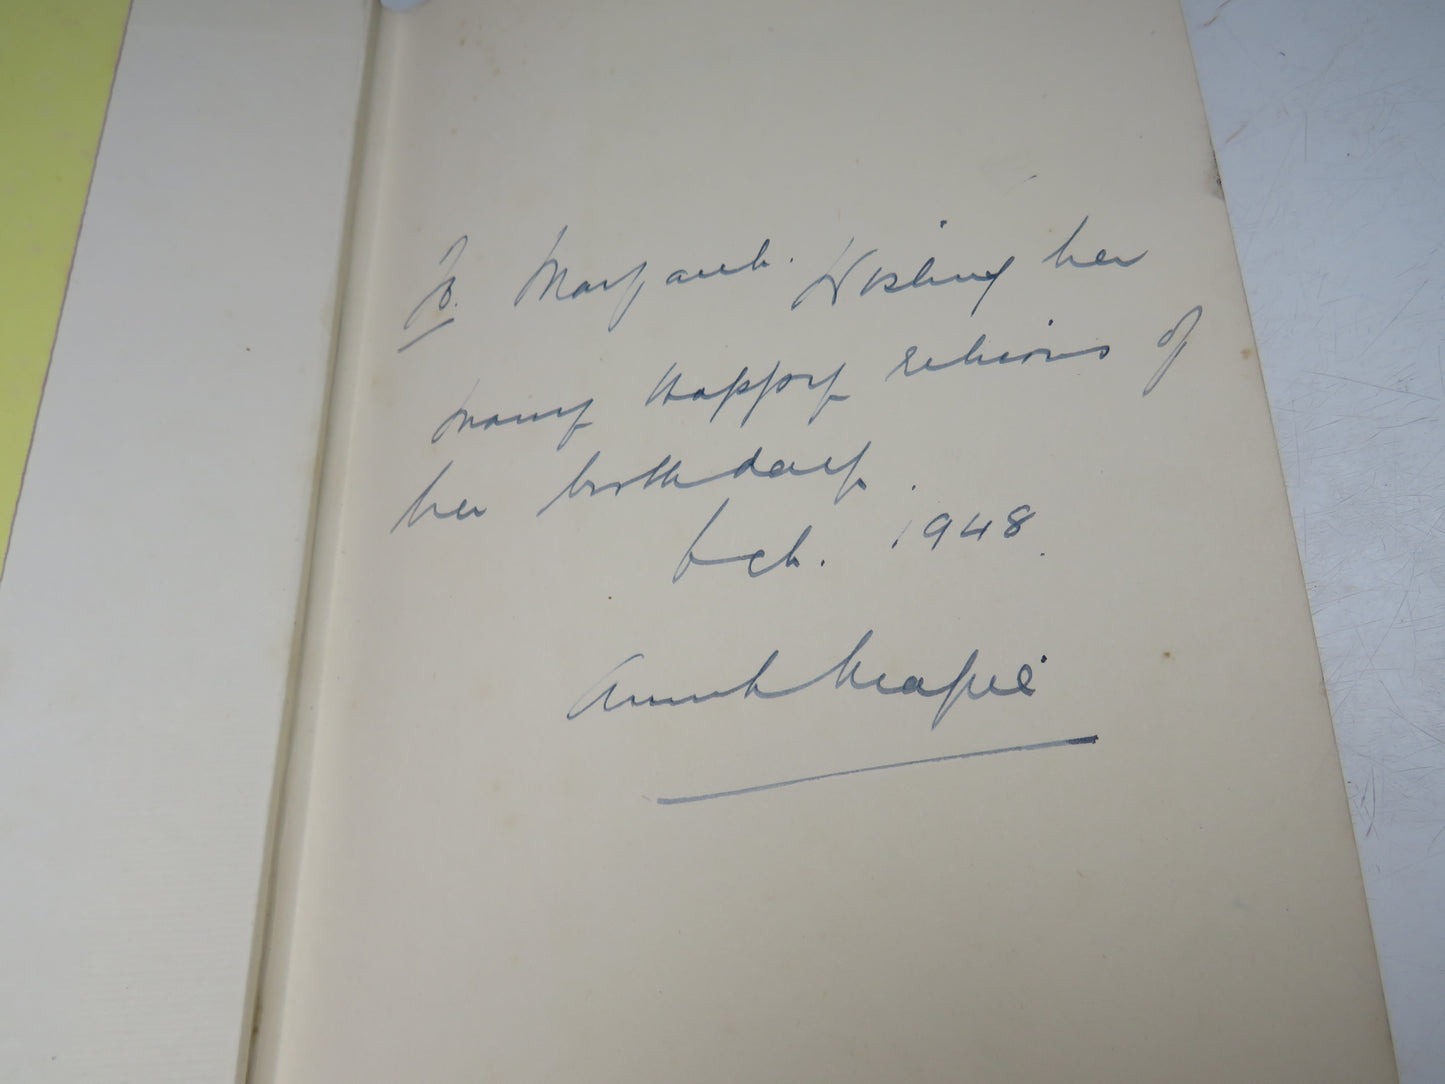 To. Margaret. Wishing her
many Happy returns of
her birthday.
1948.
Aunt